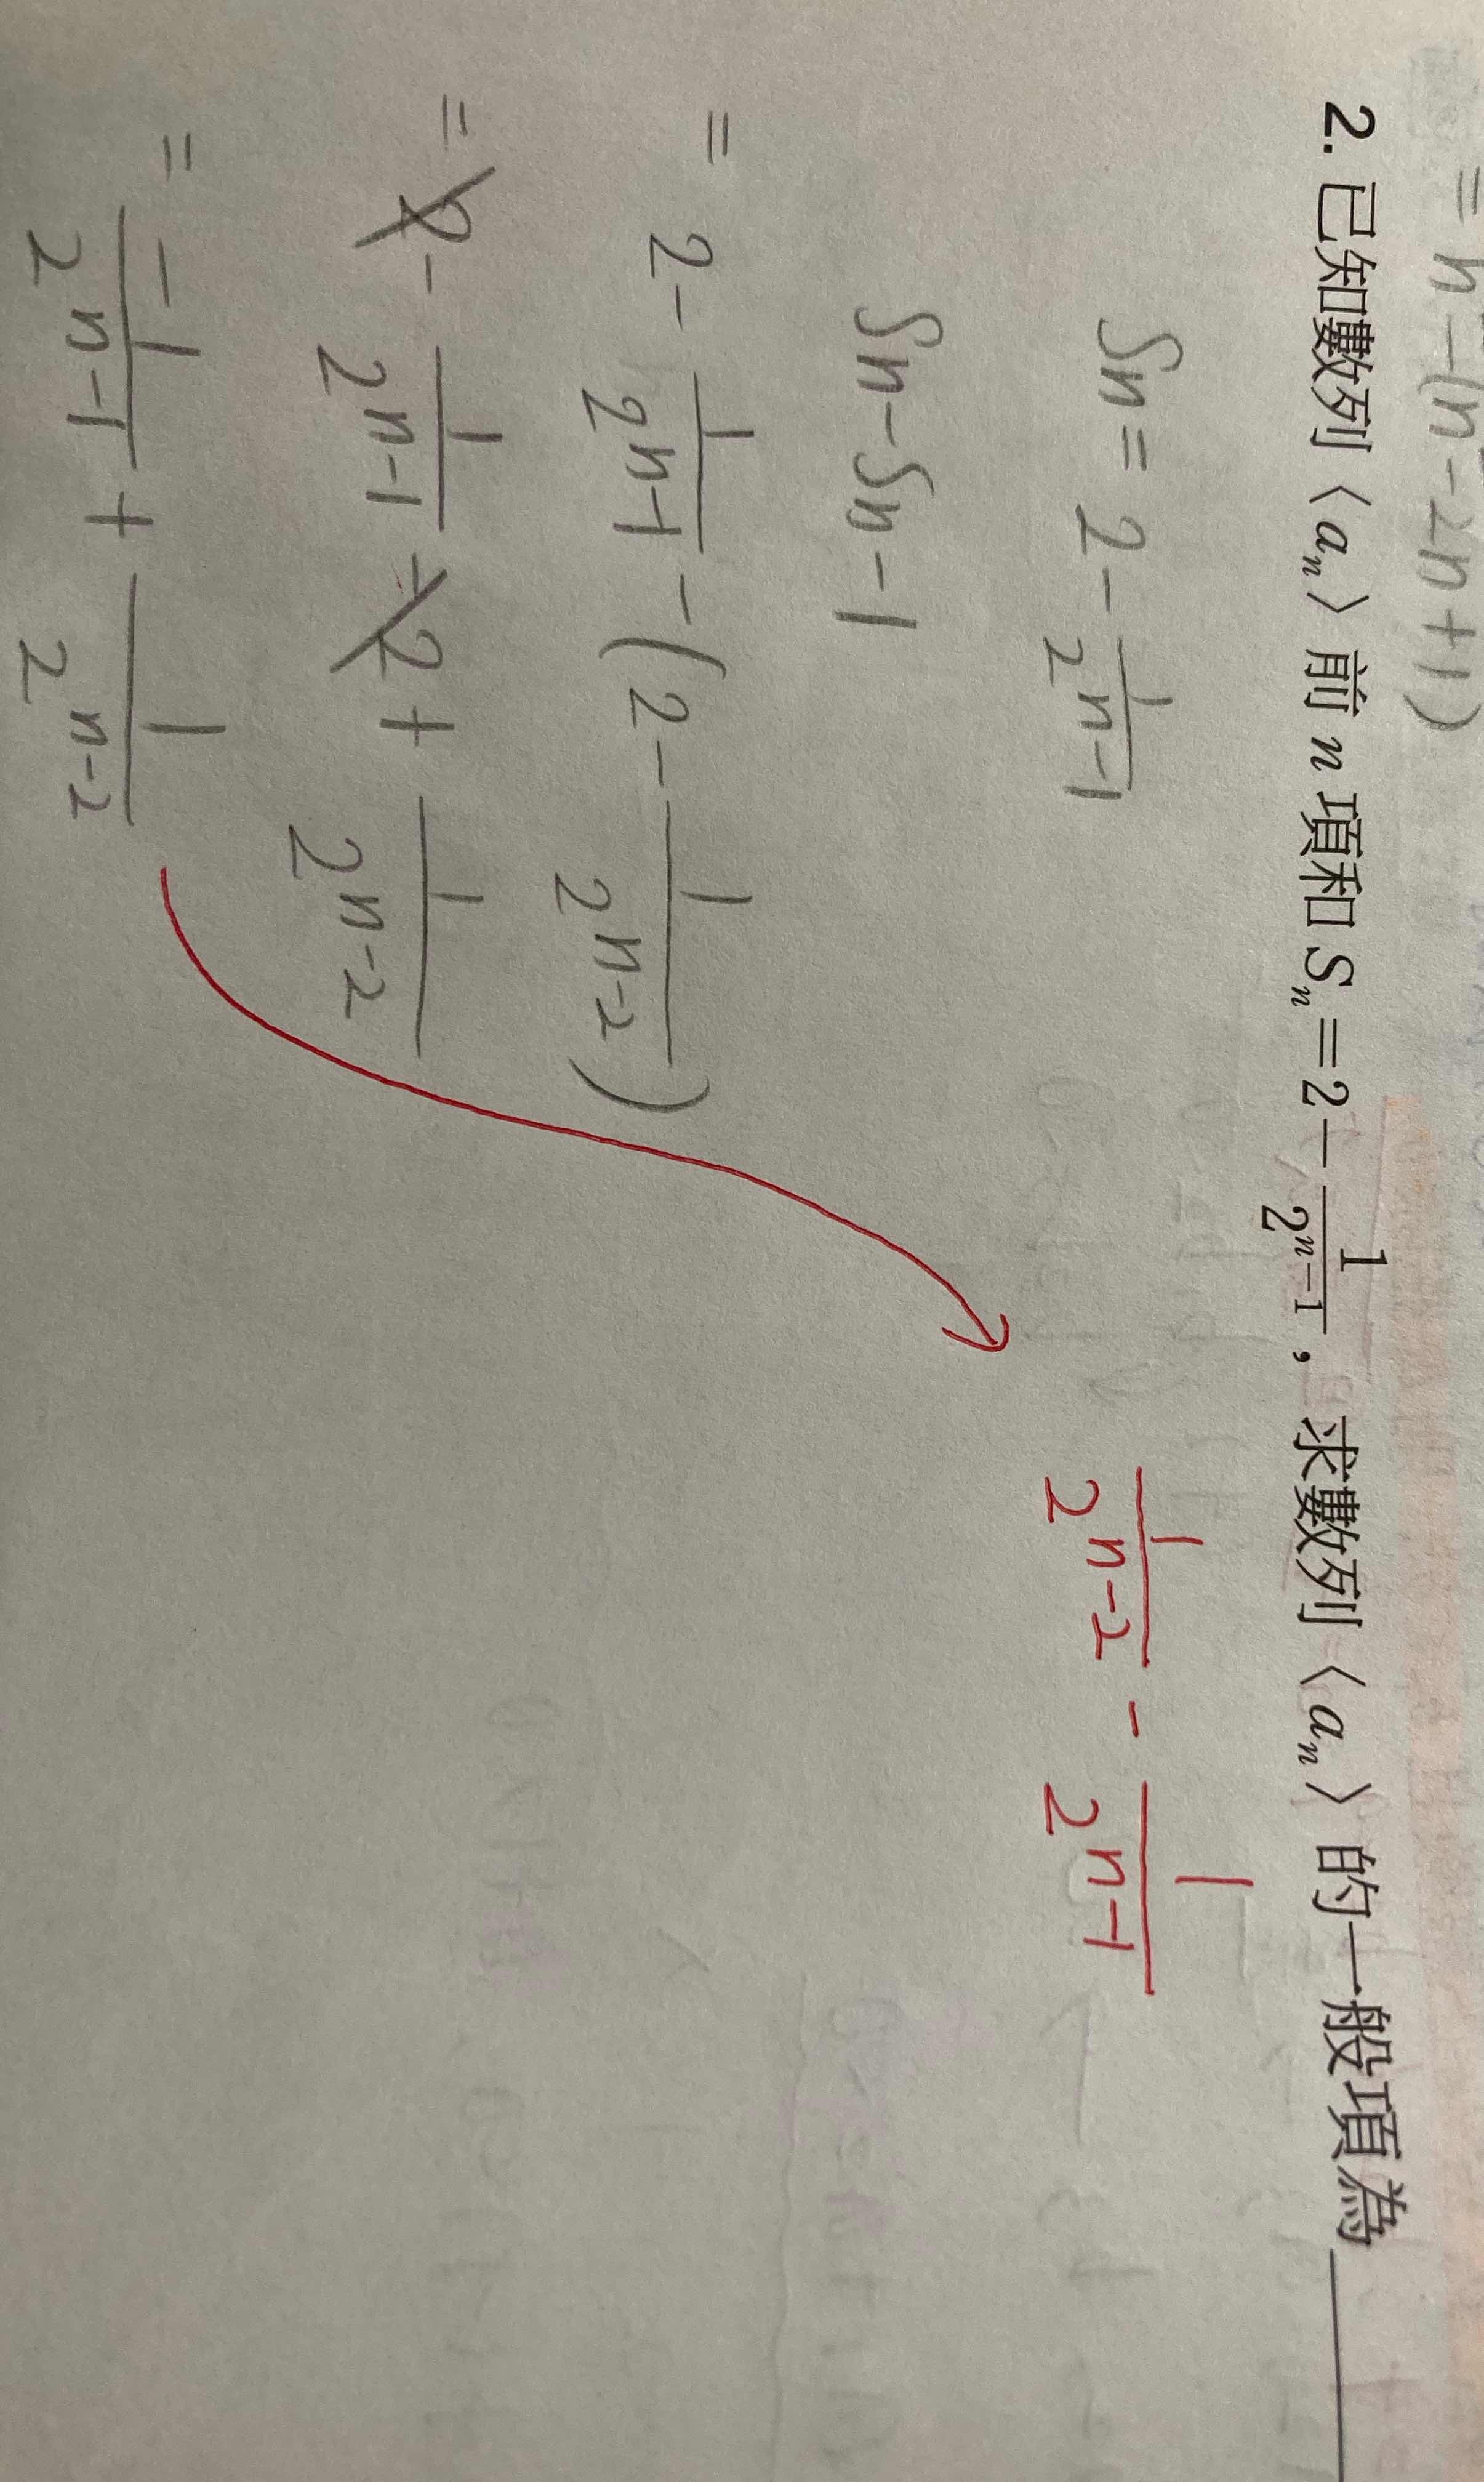 = n² - (n² - 2n + 1)
2. 已知數列〈aₙ〉前 n 項和 Sₙ = 2 - 1/2ⁿ⁻¹, 求數列〈aₙ〉的一般項為______
Sn = 2 - 1/2ⁿ⁻¹
1/2ⁿ⁻² - 1/2ⁿ⁻¹
Sn - Sn-1
= 2 - 1/2ⁿ⁻¹ - (2 - 1/2ⁿ⁻²)
= 2 - 1/2ⁿ⁻¹ - 2 + 1/2ⁿ⁻²
= -1/2ⁿ⁻¹ + 1/2ⁿ⁻²